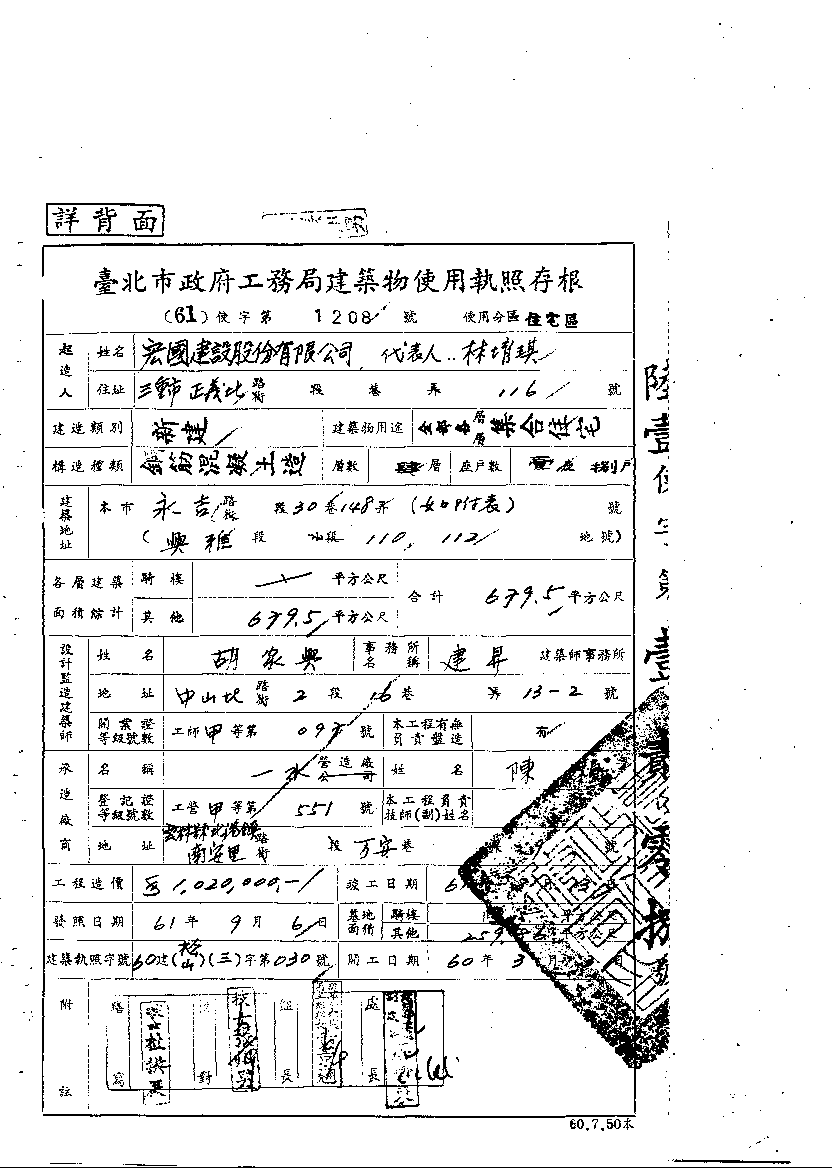 詳背面
臺北市政府工務局建築物使用執照存根
(61)使字第 1208 號 使用分區 住宅區
起造人 姓名 宏國建設股份有限公司 代表人..林堉琪
住址 三重市 正義北 路街 段 巷 弄 116 號
建造類別 新建 建築物用途 全部各層 集合住宅
構造種類 鋼筋混凝土造 層數 肆層 座戶數 壹座 捌戶
建築地址 本市 永吉 路街 段30巷148弄 (如附表) 號
(興雅 段 小段 110, 112 地號)
各層建築面積綜計 騎樓 平方公尺 合計 679.5 平方公尺
其他 679.5 平方公尺
設計監造建築師 姓名 胡家興 事務所名稱 建昇 建築師事務所
地址 中山北 路街 2 段 16 巷 弄 13-2 號
開業證等級號數 工師甲等第 號 本工程有無負責監造 有
承造廠商 名稱 一水 營造廠公司 姓名 陳
登記證等級號數 工營甲等第 551 號 本工程負責技師(副)姓名
地址 雲林縣北港鎮南安里 路街 段 万安 巷 號
工程造價 1,020,000,- 竣工日期
發照日期 61年 9月 6日 基地面積 騎樓 平方公尺
其他 平方公尺
建築執照字號 60建(松山)(三)字第030號 開工日期 60年 3月
附註 繕寫 校對 組長 處長
60.7.50本
陸壹使字第壹貳零捌號